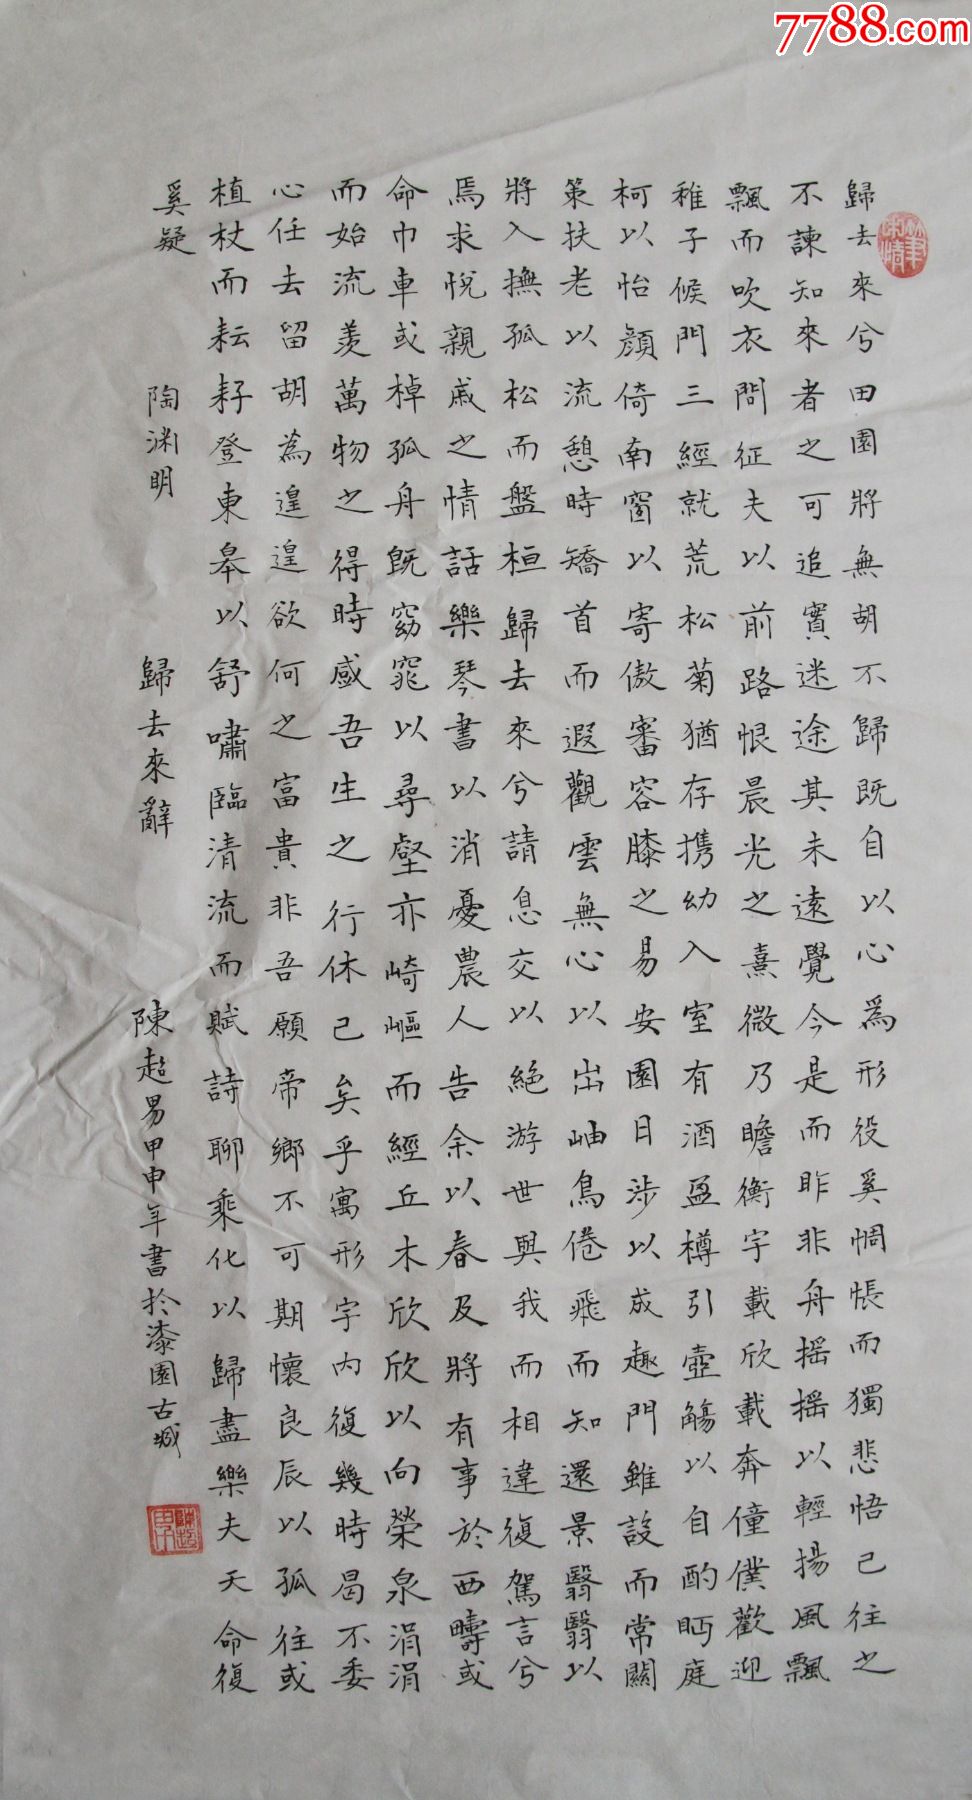 7788.com
歸去來兮田園將無胡不歸既自以心為形役奚惆悵而獨悲悟已往之
不諫知來者之可追實迷途其未遠覺今是而昨非舟搖搖以輕揚風飄
飄而吹衣問征夫以前路恨晨光之熹微乃瞻衡宇載欣載奔僮僕歡迎
稚子候門三經就荒松菊猶存携幼入室有酒盈樽引壺觴以自酌眄庭
柯以怡顏倚南窗以寄傲審容膝之易安園日涉以成趣門雖設而常關
策扶老以流憩時矯首而遐觀雲無心以出岫鳥倦飛而知還景翳翳以
將入撫孤松而盤桓歸去來兮請息交以絕游世與我而相違復駕言兮
焉求悅親戚之情話樂琴書以消憂農人告余以春及將有事於西疇或
命巾車或棹孤舟既窈窕以尋壑亦崎嶇而經丘木欣欣以向榮泉涓涓
而始流羨萬物之得時感吾生之行休已矣乎寓形宇內復幾時曷不委
心任去留胡為遑遑欲何之富貴非吾願帝鄉不可期懷良辰以孤往或
植杖而耘耔登東皋以舒嘯臨清流而賦詩聊乘化以歸盡樂夫天命復
奚疑 陶渊明 歸去來辭 陳超男甲申年書於漆園古城